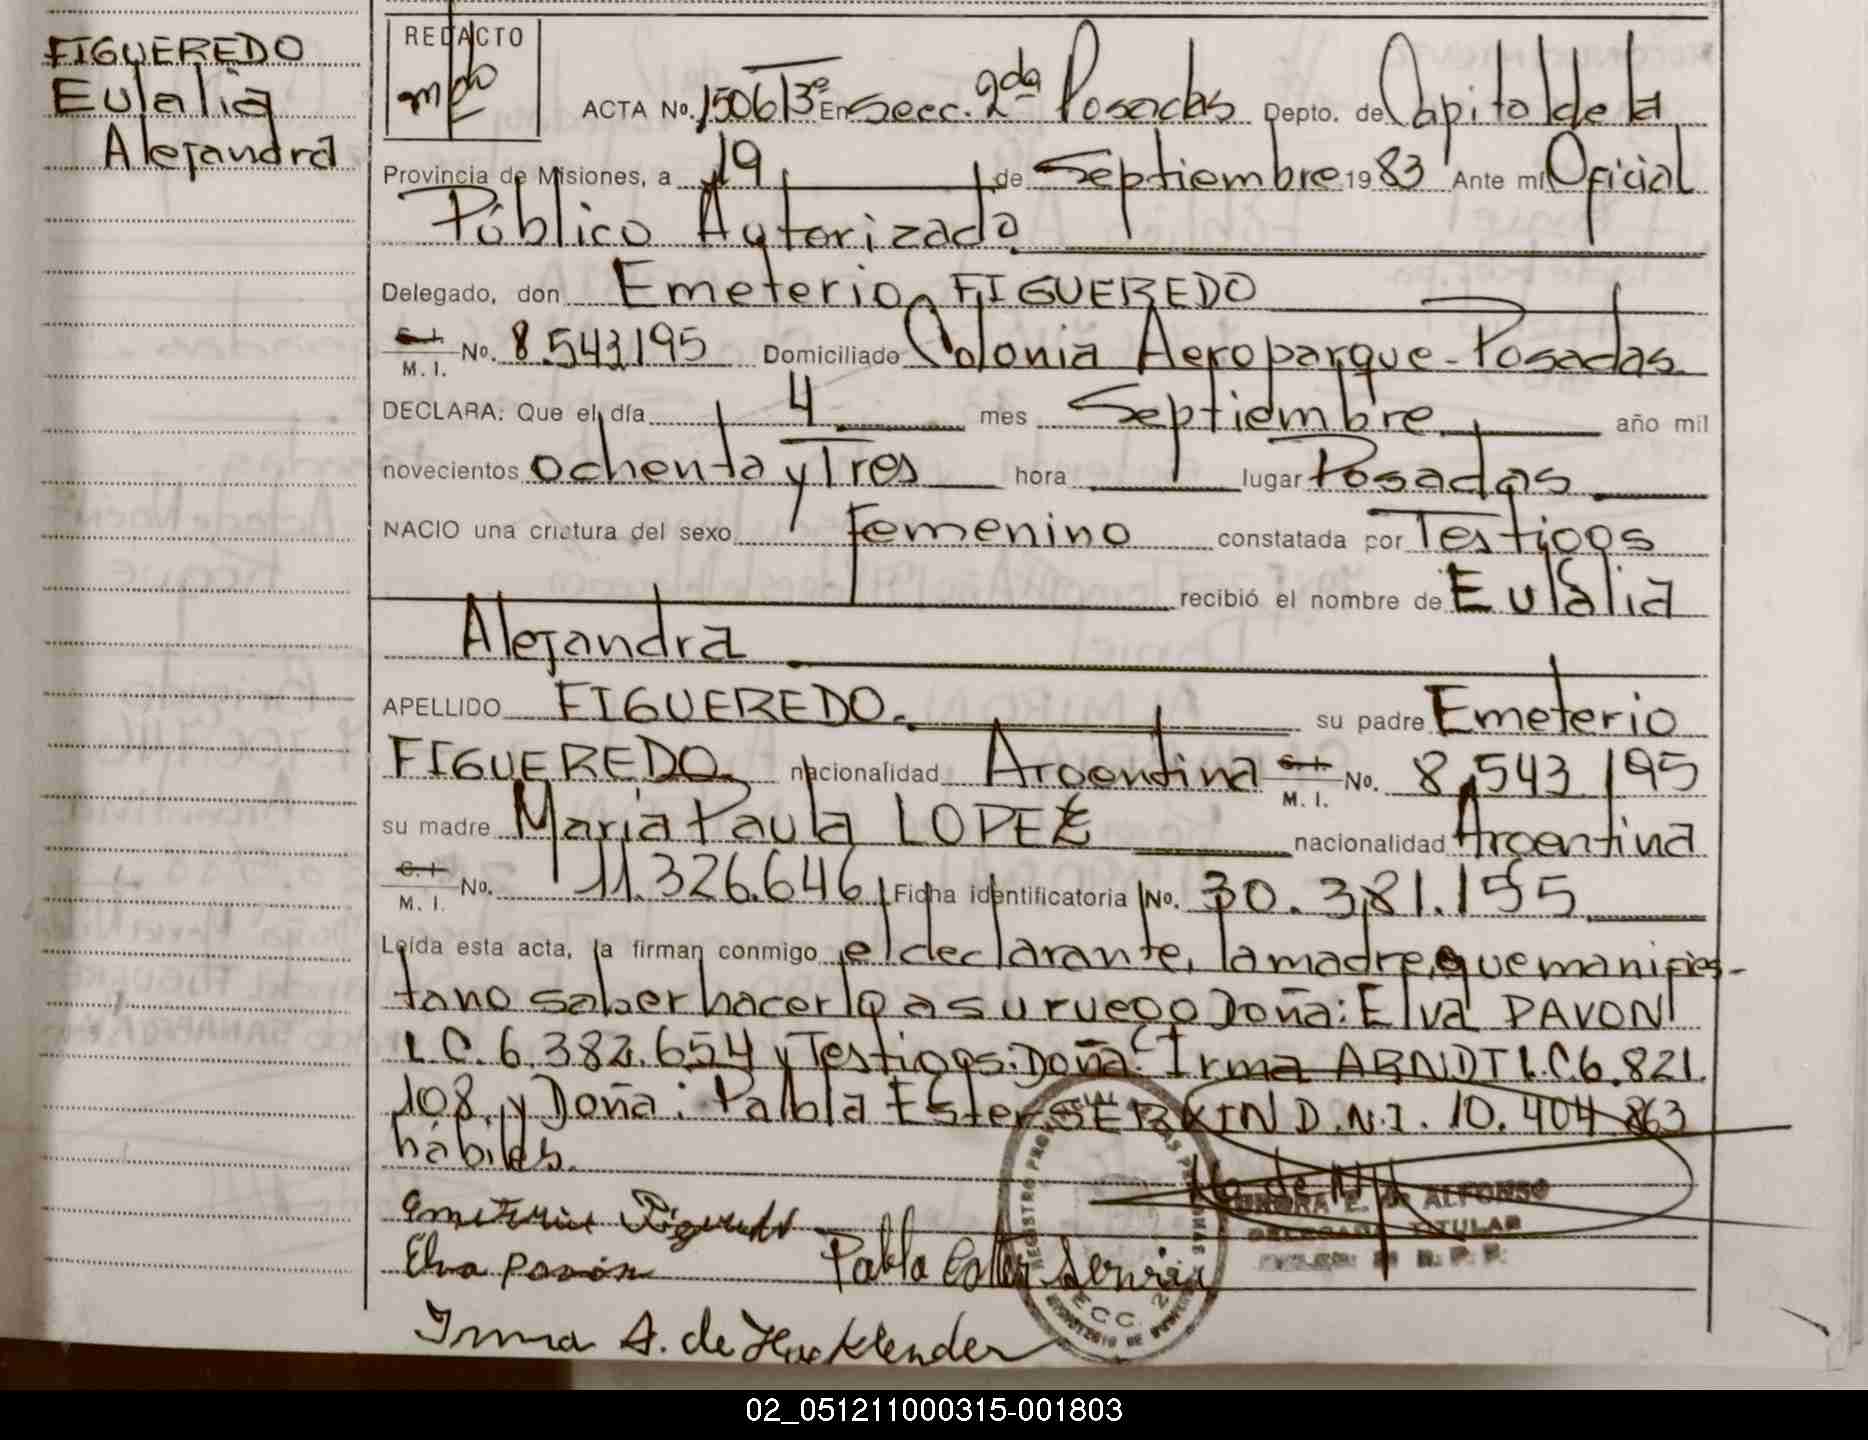 FIGUEREDO
Eulalia
Alejandra
REDACTO
ACTA No. 1506 T3º En Secc. 2da Posadas Depto. de Capital de la
Provincia de Misiones, a 19 de Septiembre 1983 Ante mí Oficial
Público Autorizado
Delegado, don Emeterio FIGUEREDO
C. I. M. I. No. 8.543.195 Domiciliado Colonia Aeroparque - Posadas
DECLARA: Que el día 4 mes Septiembre año mil
novecientos ochenta y Tres hora lugar Posadas
NACIO una criatura del sexo Femenino constatada por Testigos
recibió el nombre de Eulalia
Alejandra
APELLIDO FIGUEREDO. su padre Emeterio
FIGUEREDO nacionalidad Argentina C. I. M. I. No. 8.543.195
su madre Maria Paula LOPEZ nacionalidad Argentina
C. I. M. I. No. 11.326.646 Ficha identificatoria No. 30.381.155
Leída esta acta, la firman conmigo el declarante, la madre, que manifies-
ta no saber hacerlo a su ruego Doña: Elva PAVON
L.C. 6.382.654 y Testigos. Doña: Irma ARNDT L.C 6.821.
108, y Doña: Pabla Ester SERKIN D.N.I. 10.404.863
hábiles.
Emeterio Figueredo
Elva Pavón Pabla Ester
E. D. ALFONSO
DELEGADA TITULAR
Irma A. de
REGISTRO PROV
SECC. 2
02_051211000315-001803